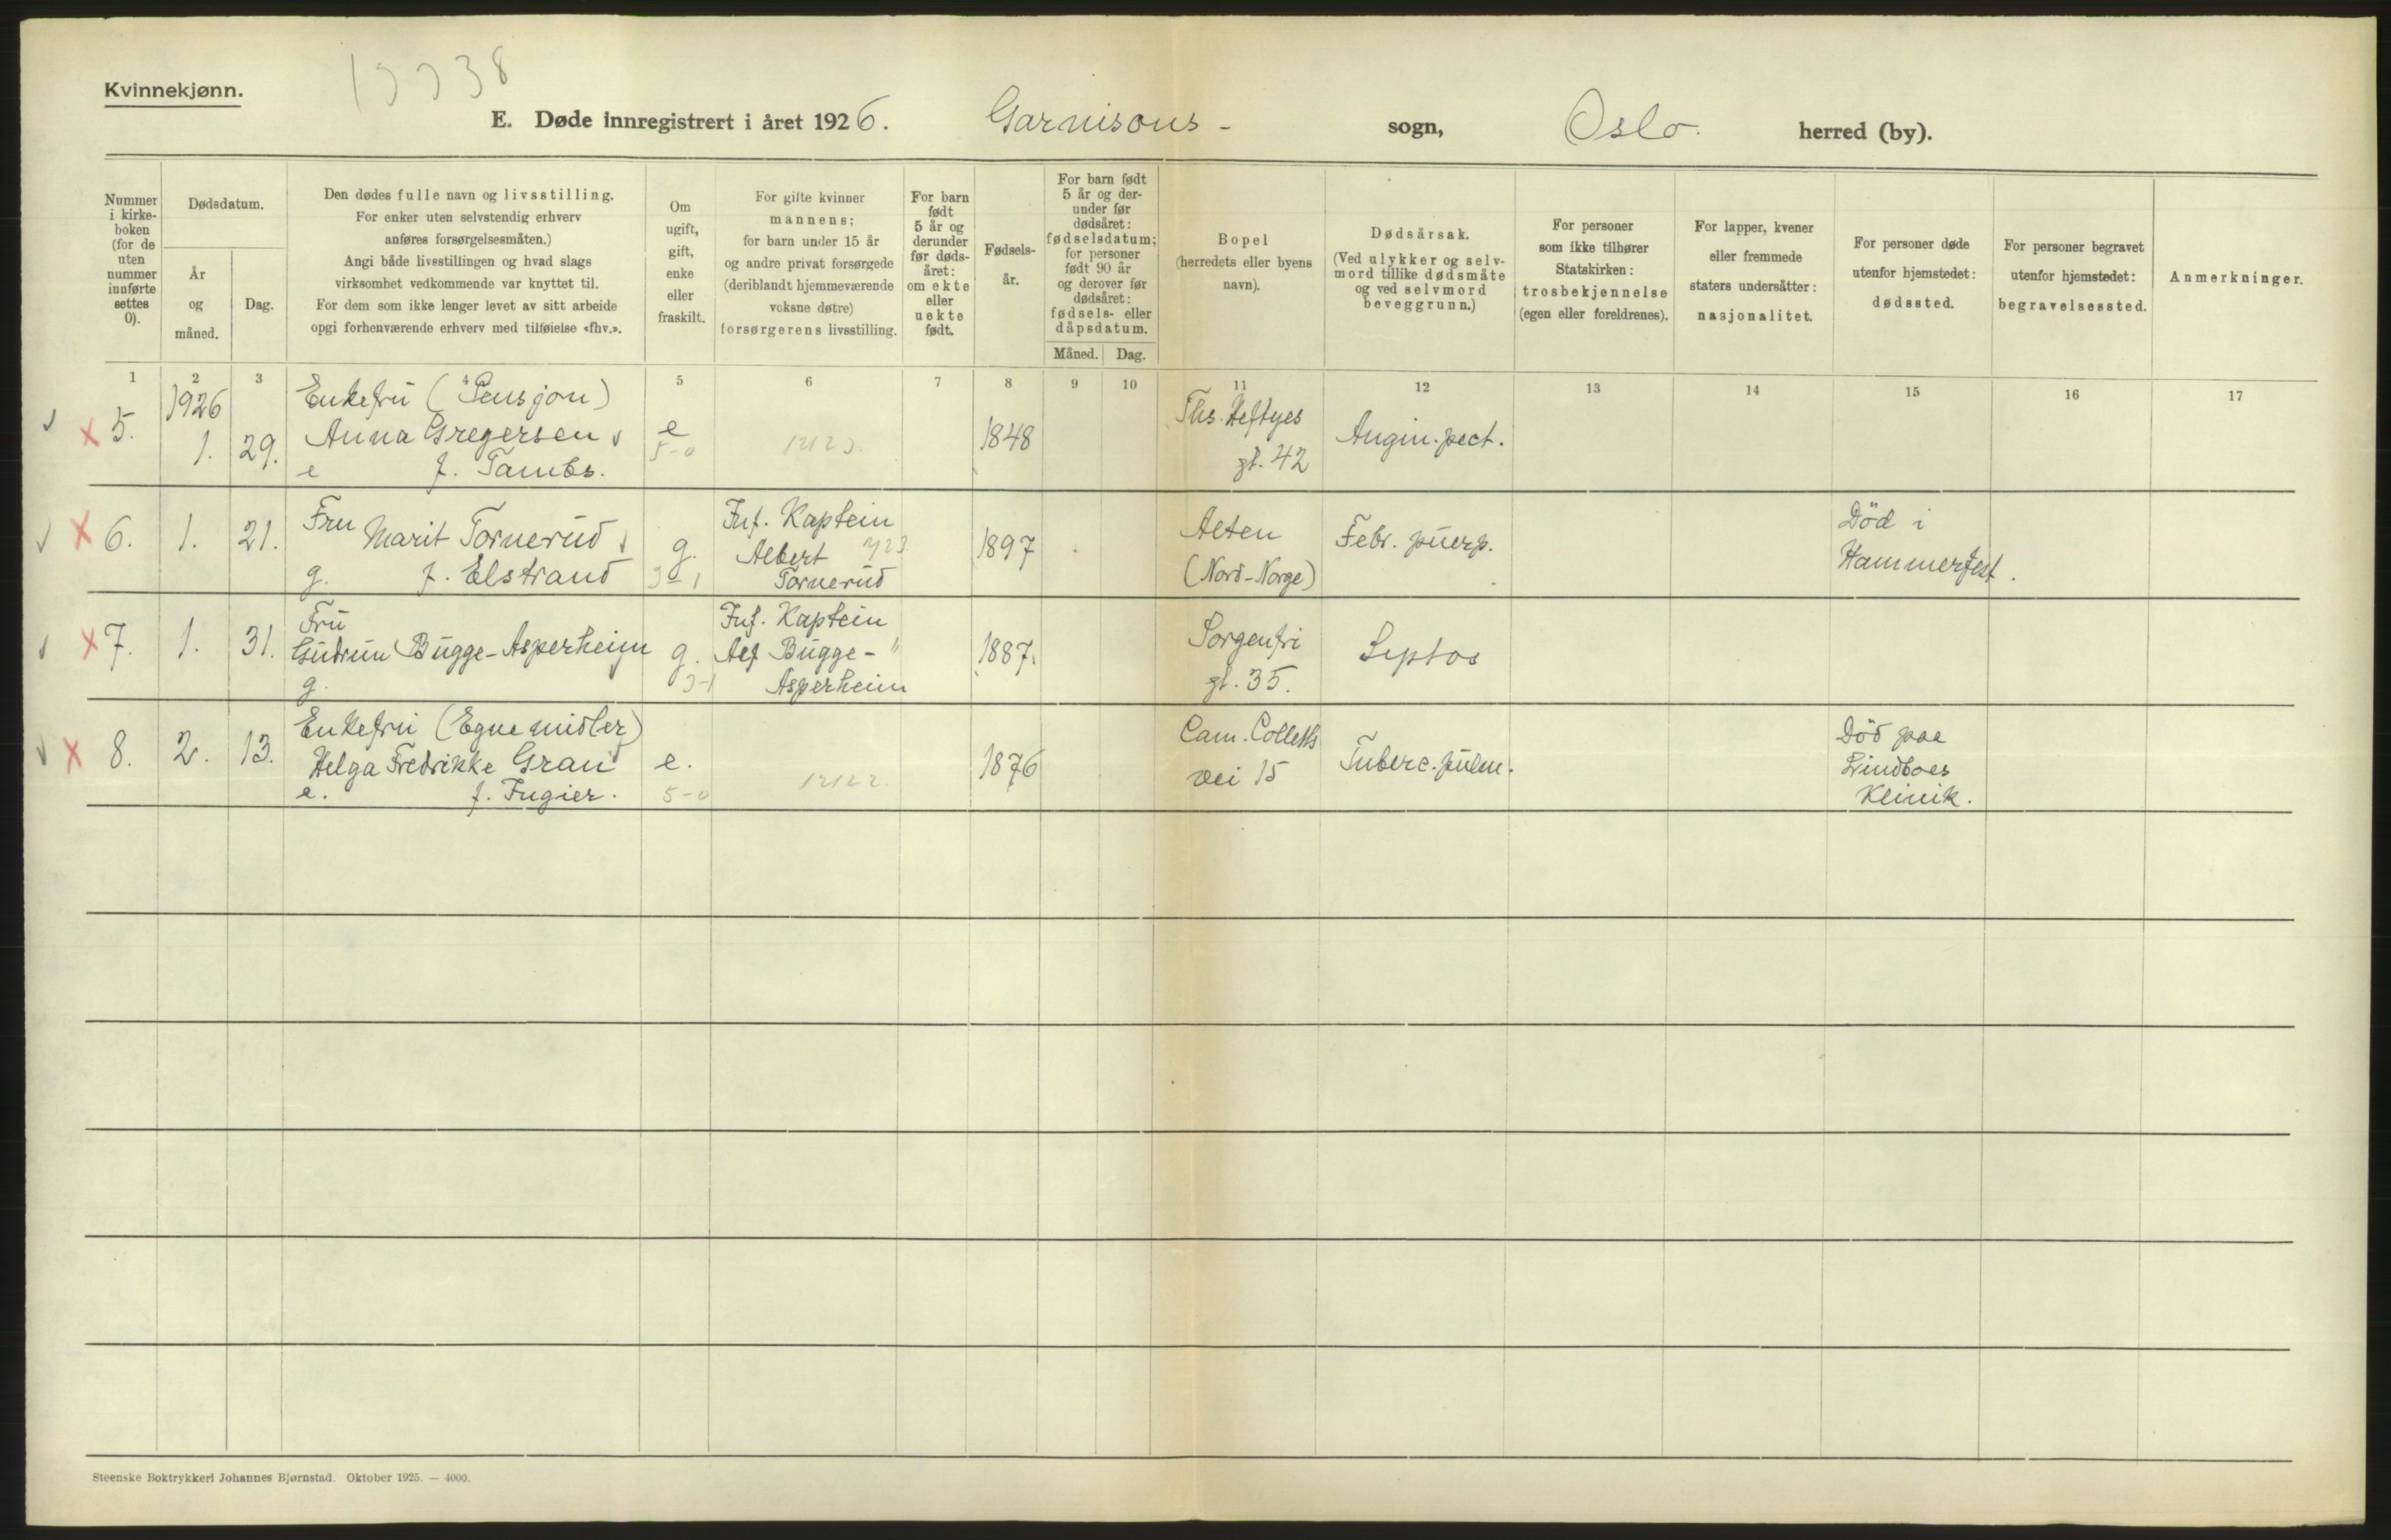 Kvinnekjønn.
E. Døde innregistrert i året 1926. Garnisons- sogn, Oslo. herred (by).
Nummer i kirke- boken (for de uten nummer innførte settes 0).
Dødsdatum.
År og måned.
Dag.
Den dødes fulle navn og livsstilling.
For enker uten selvstendig erhverv
anføres forsørgelsesmåten.)
Angi både livsstillingen og hvad slags
virksomhet vedkommende var knyttet til.
For dem som ikke lenger levet av sitt arbeide
opgi forhenværende erhverv med tilføielse «fhv.».
Om
ugift,
gift,
enke
eller
fraskilt.
For gifte kvinner
mannens;
for barn under 15 år
og andre privat forsørgede
(deriblandt hjemmeværende
voksne døtre)
forsørgerens livsstilling.
For barn
født
5 år og
derunder
før døds-
året:
om ekte
eller
uekte
født.
Fødsels-
år.
For barn født
5 år og der-
under før
dødsåret:
fødselsdatum;
for personer
født 90 år
og derover før
dødsåret:
fødsels- eller
dåpsdatum.
Måned. Dag.
Bopel
(herredets eller byens
navn).
Dødsårsak.
(Ved ulykker og selv-
mord tillike dødsmåte
og ved selvmord
beveggrunn.)
For personer
som ikke tilhører
Statskirken:
trosbekjennelse
(egen eller foreldrenes).
For lapper, kvener
eller fremmede
staters undersåtter:
nasjonalitet.
For personer døde
utenfor hjemstedet:
dødssted.
For personer begravet
utenfor hjemstedet:
begravelsessted.
Anmerkninger.
1 2 3 4 5 6 7 8 9 10 11 12 13 14 15 16 17
1926
5. 1. 29.
Enkefru (Pensjon)
Anna Gregersen
e f. Tambs.
e
5-0
1848
Ths. Heftyes
gt. 42
Angin. pect.
6. 1. 21.
Fru Marit Tornerud
g. f. Elstrand
g.
Inf. Kaptein
Albert
Tornerud
1897
Alten
(Nord-Norge)
Febr. puerp.
Död i
Hammerfest.
7. 1. 31.
Fru
Gudrun Bugge-Asperheim
g.
g.
Inf. Kaptein
Alf Bugge-
Asperheim
1887.
Sorgenfri
gt. 35.
Septos
8. 2. 13.
Enkefru (Egne midler)
Helga Fredrikke Gran
e. f. Fugier.
e.
5-0
1876
Cam. Colletts
vei 15
Tuberc. pulm.
Död paa
Lindboes
Klinik.
Steenske Boktrykkeri Johannes Bjørnstad. Oktober 1925. — 4000.